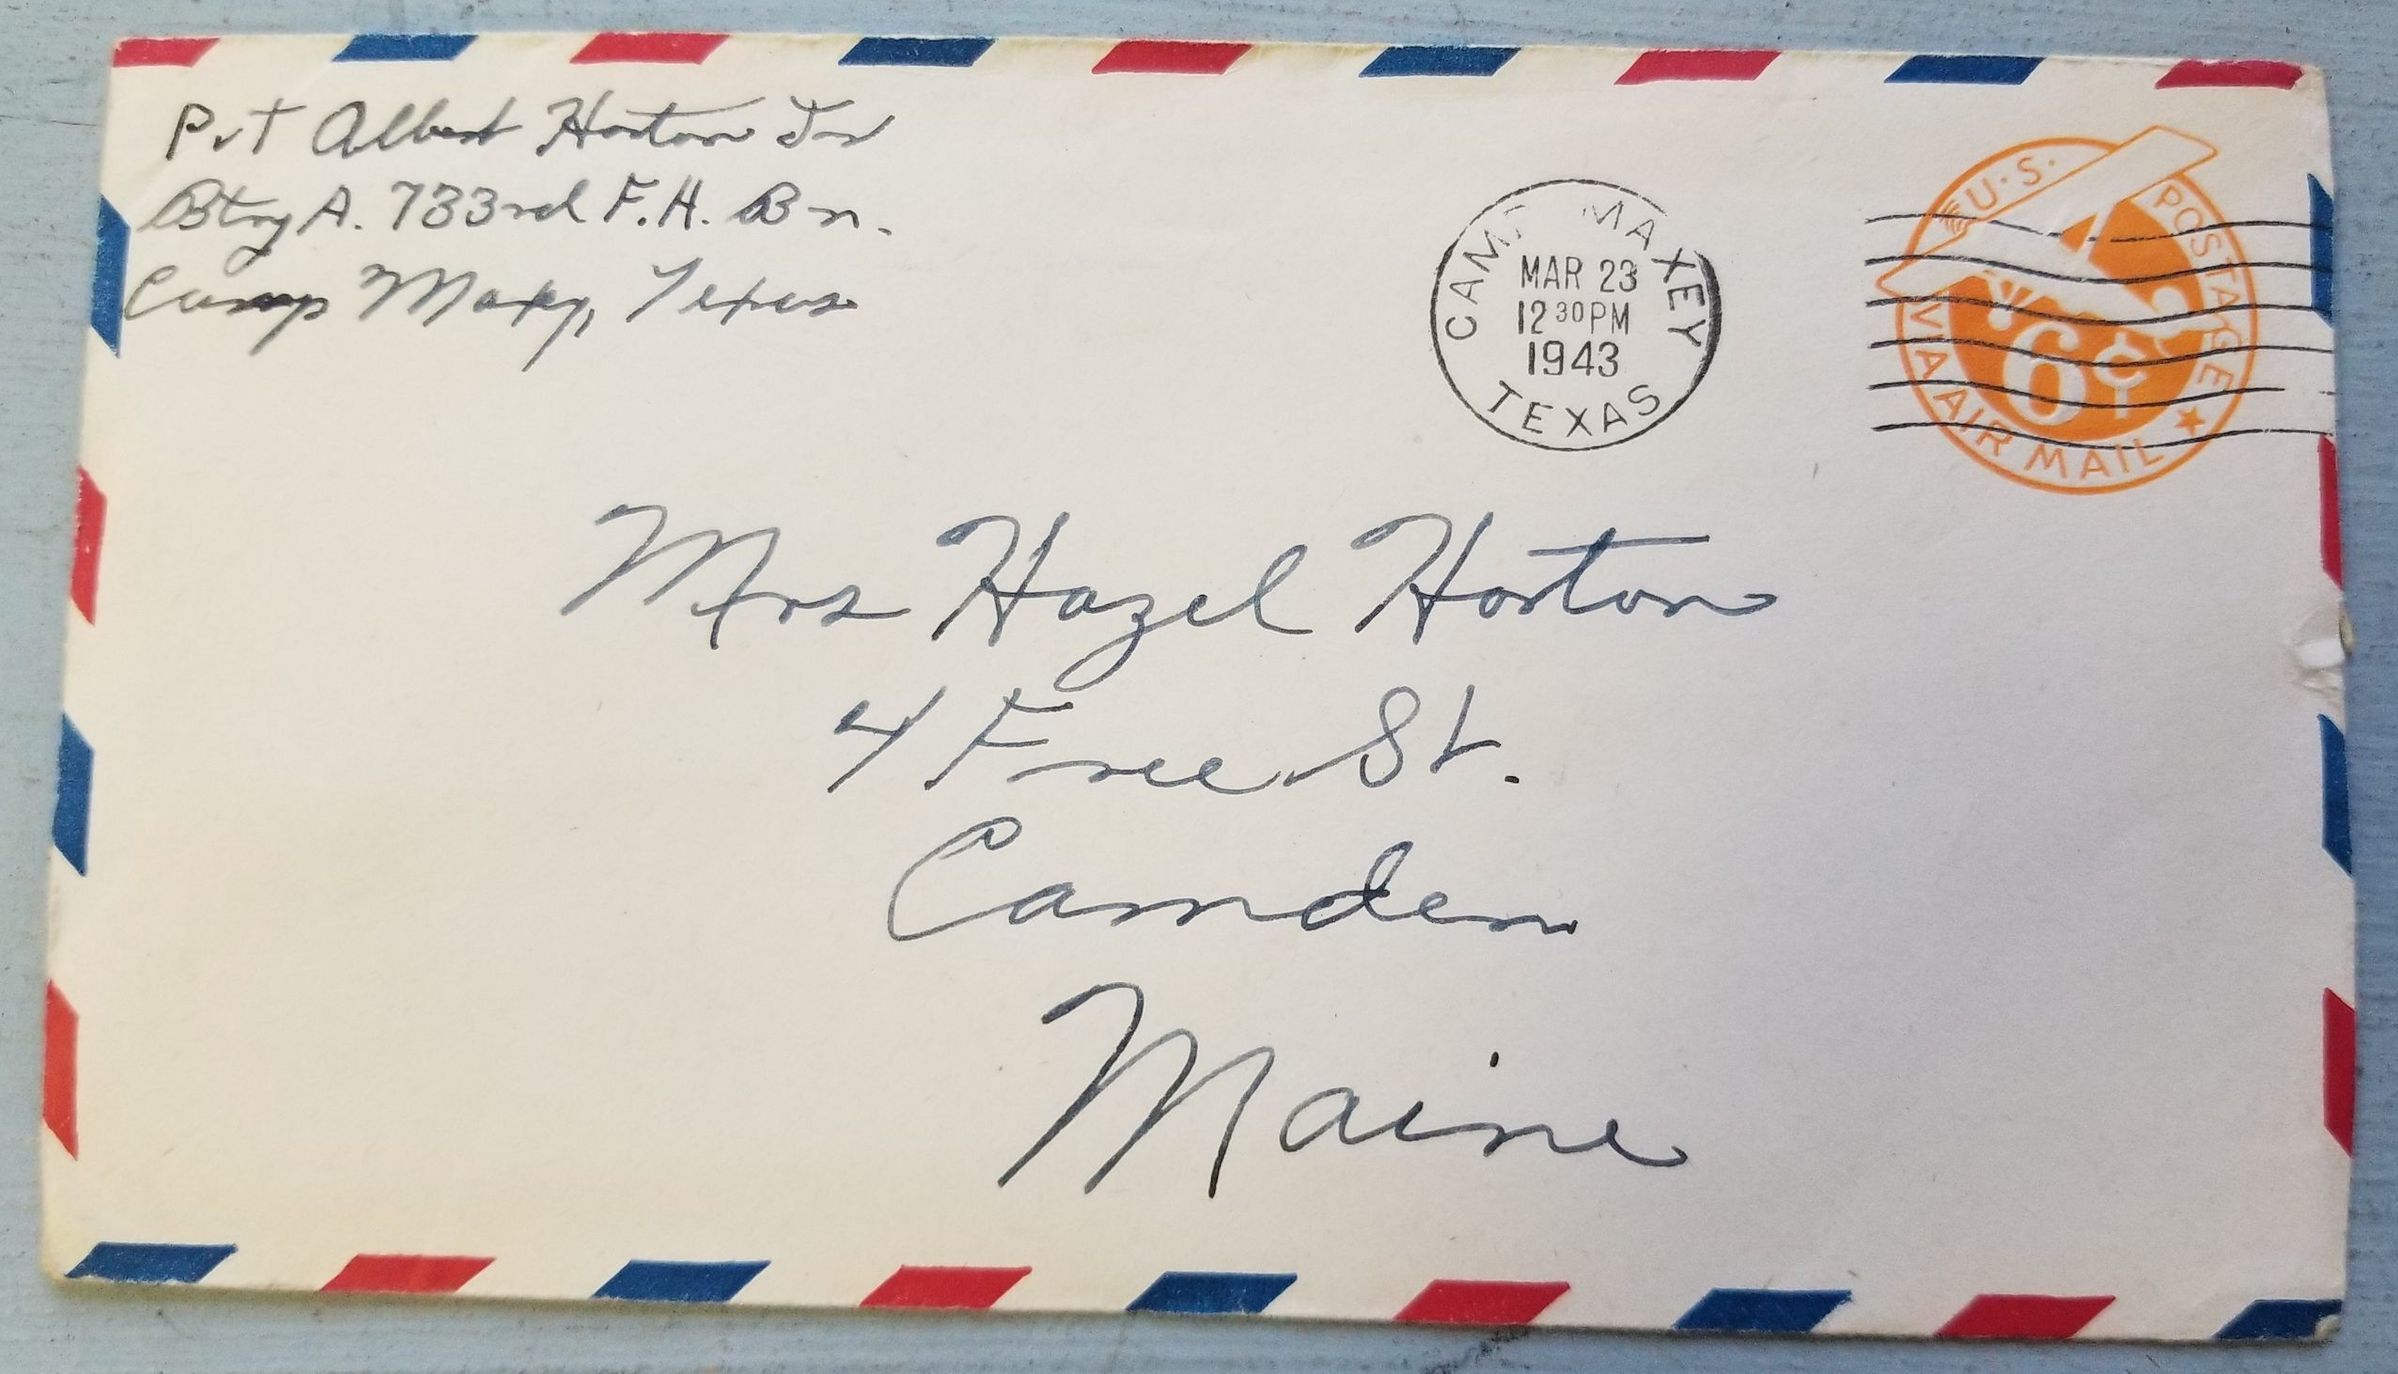 Pvt Albert Horton Jr
Btry A. 733rd F.A. Bn.
Camp Maxey, Texas
CAMP MAXEY
MAR 23
12 30 PM
1943
TEXAS
U.S. POSTAGE
6¢
VIA AIR MAIL
Mrs Hazel Horton
4 Free St.
Camden
Maine